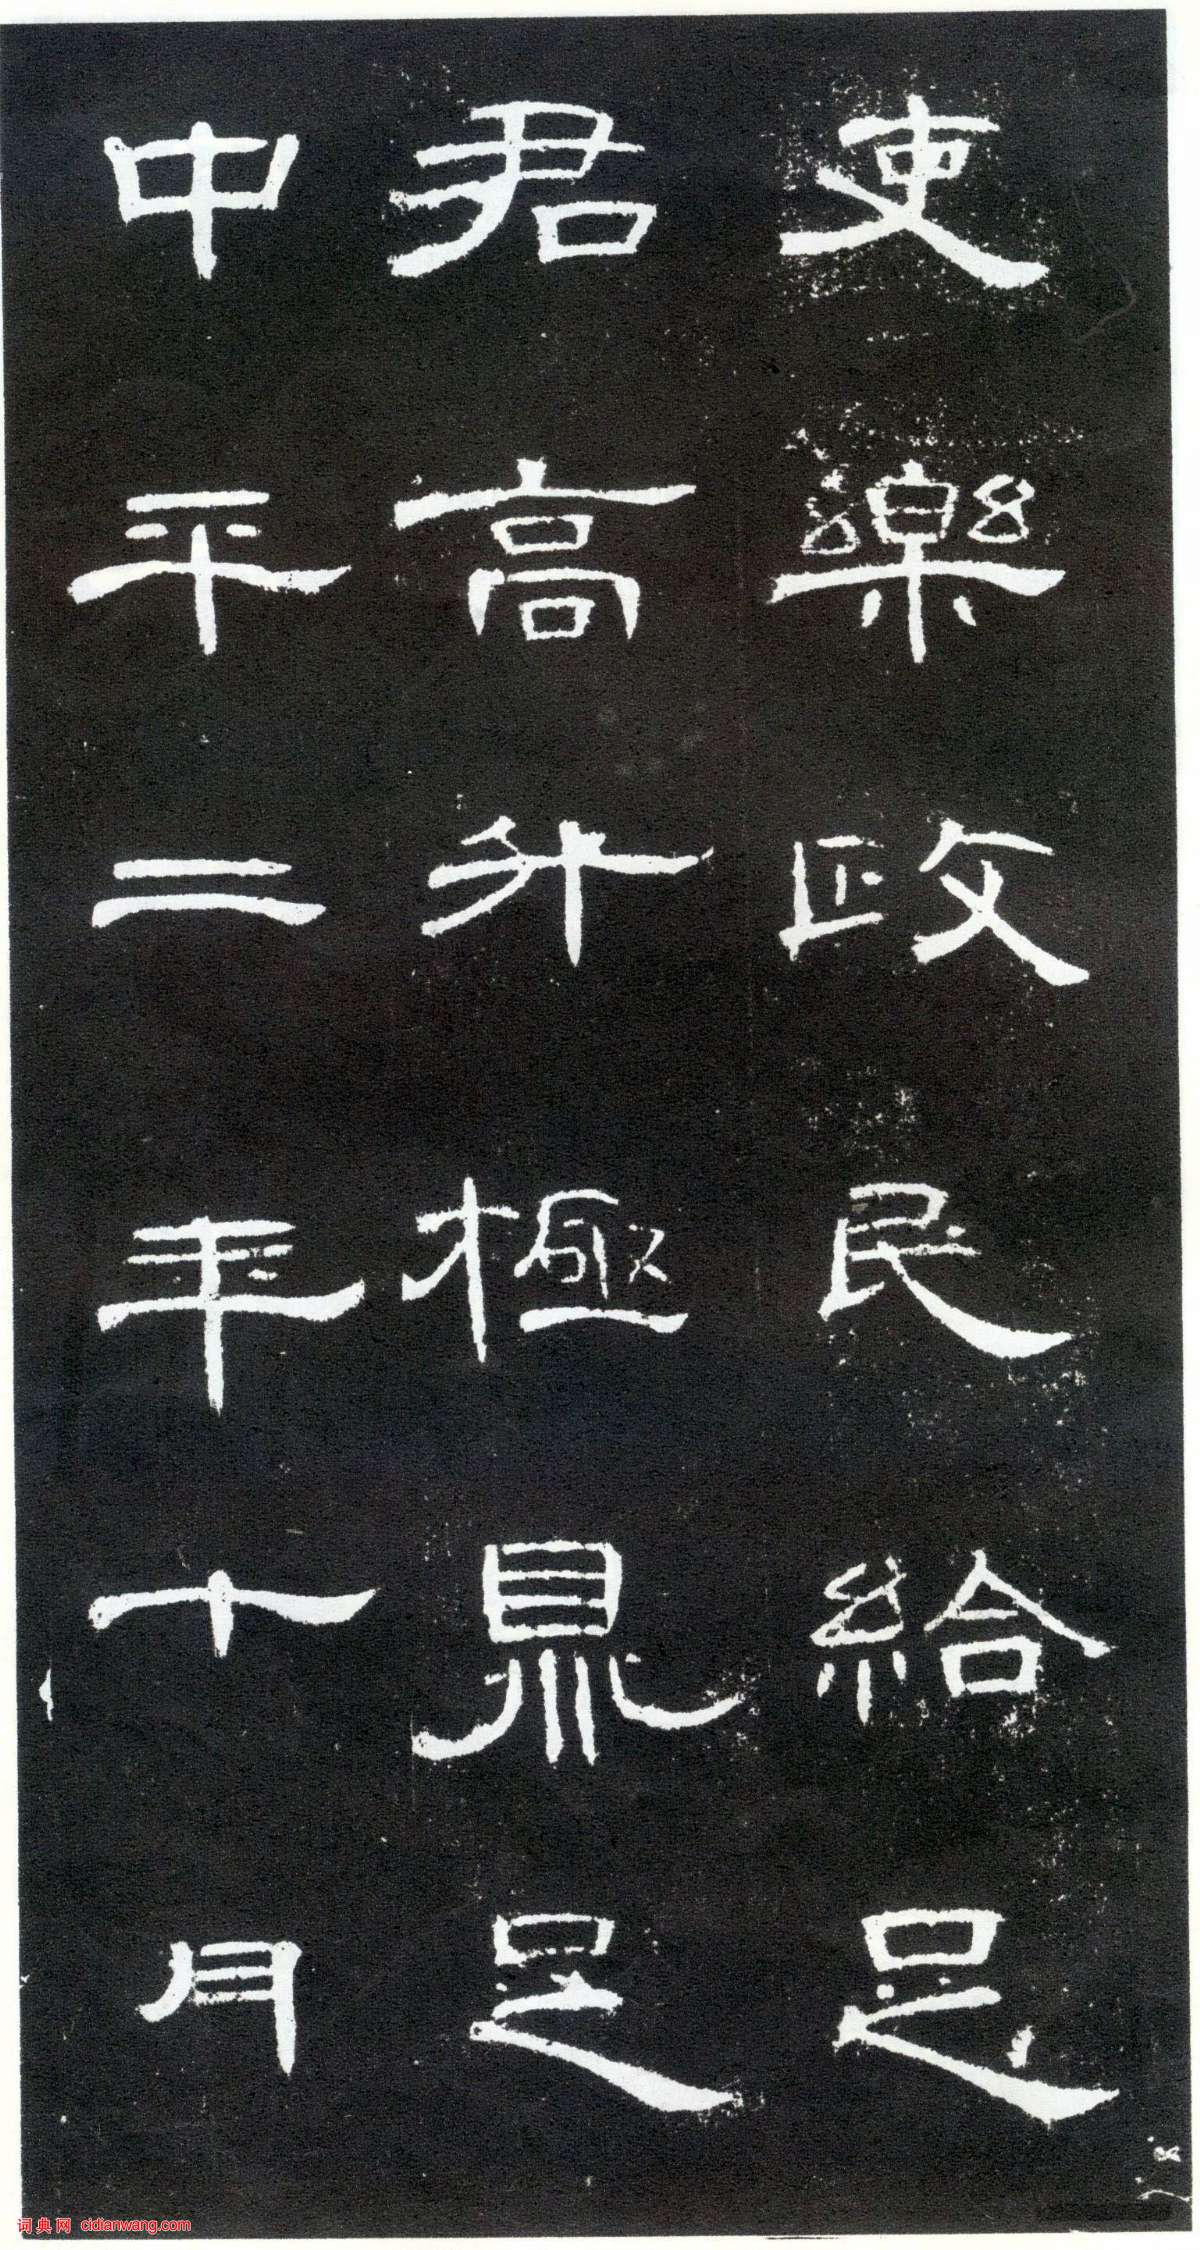 吏樂政民給足
君高升極鼎足
中平二年十月
词典网 cidianwang.com